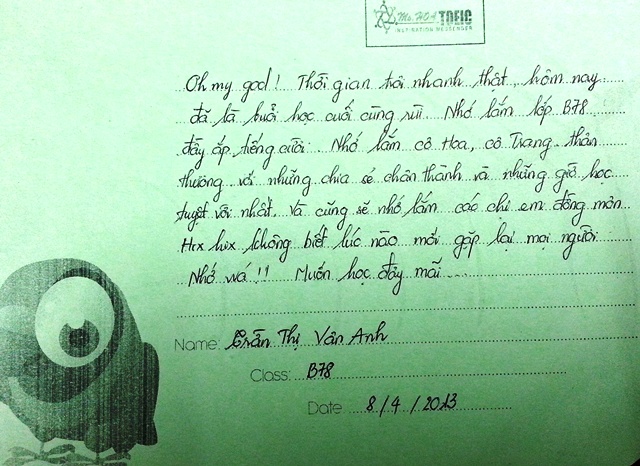 Ms. HOA TOEIC
INSPIRATION MESSENGER
Oh my god! Thời gian trôi nhanh thật, hôm nay
đã là buổi học cuối cùng rùi. Nhớ lắm lớp B78
đầy ắp tiếng cười. Nhớ lắm cô Hoa, cô Trang thân
thương với những chia sẻ chân thành và những giờ học
tuyệt vời nhất. Và cũng sẽ nhớ lắm các chị em đồng môn
Hix hix không biết lúc nào mới gặp lại mọi người
Nhớ wá!! Muốn học đây mãi...
Name: Trần Thị Vân Anh
Class: B78
Date 8/4/2013